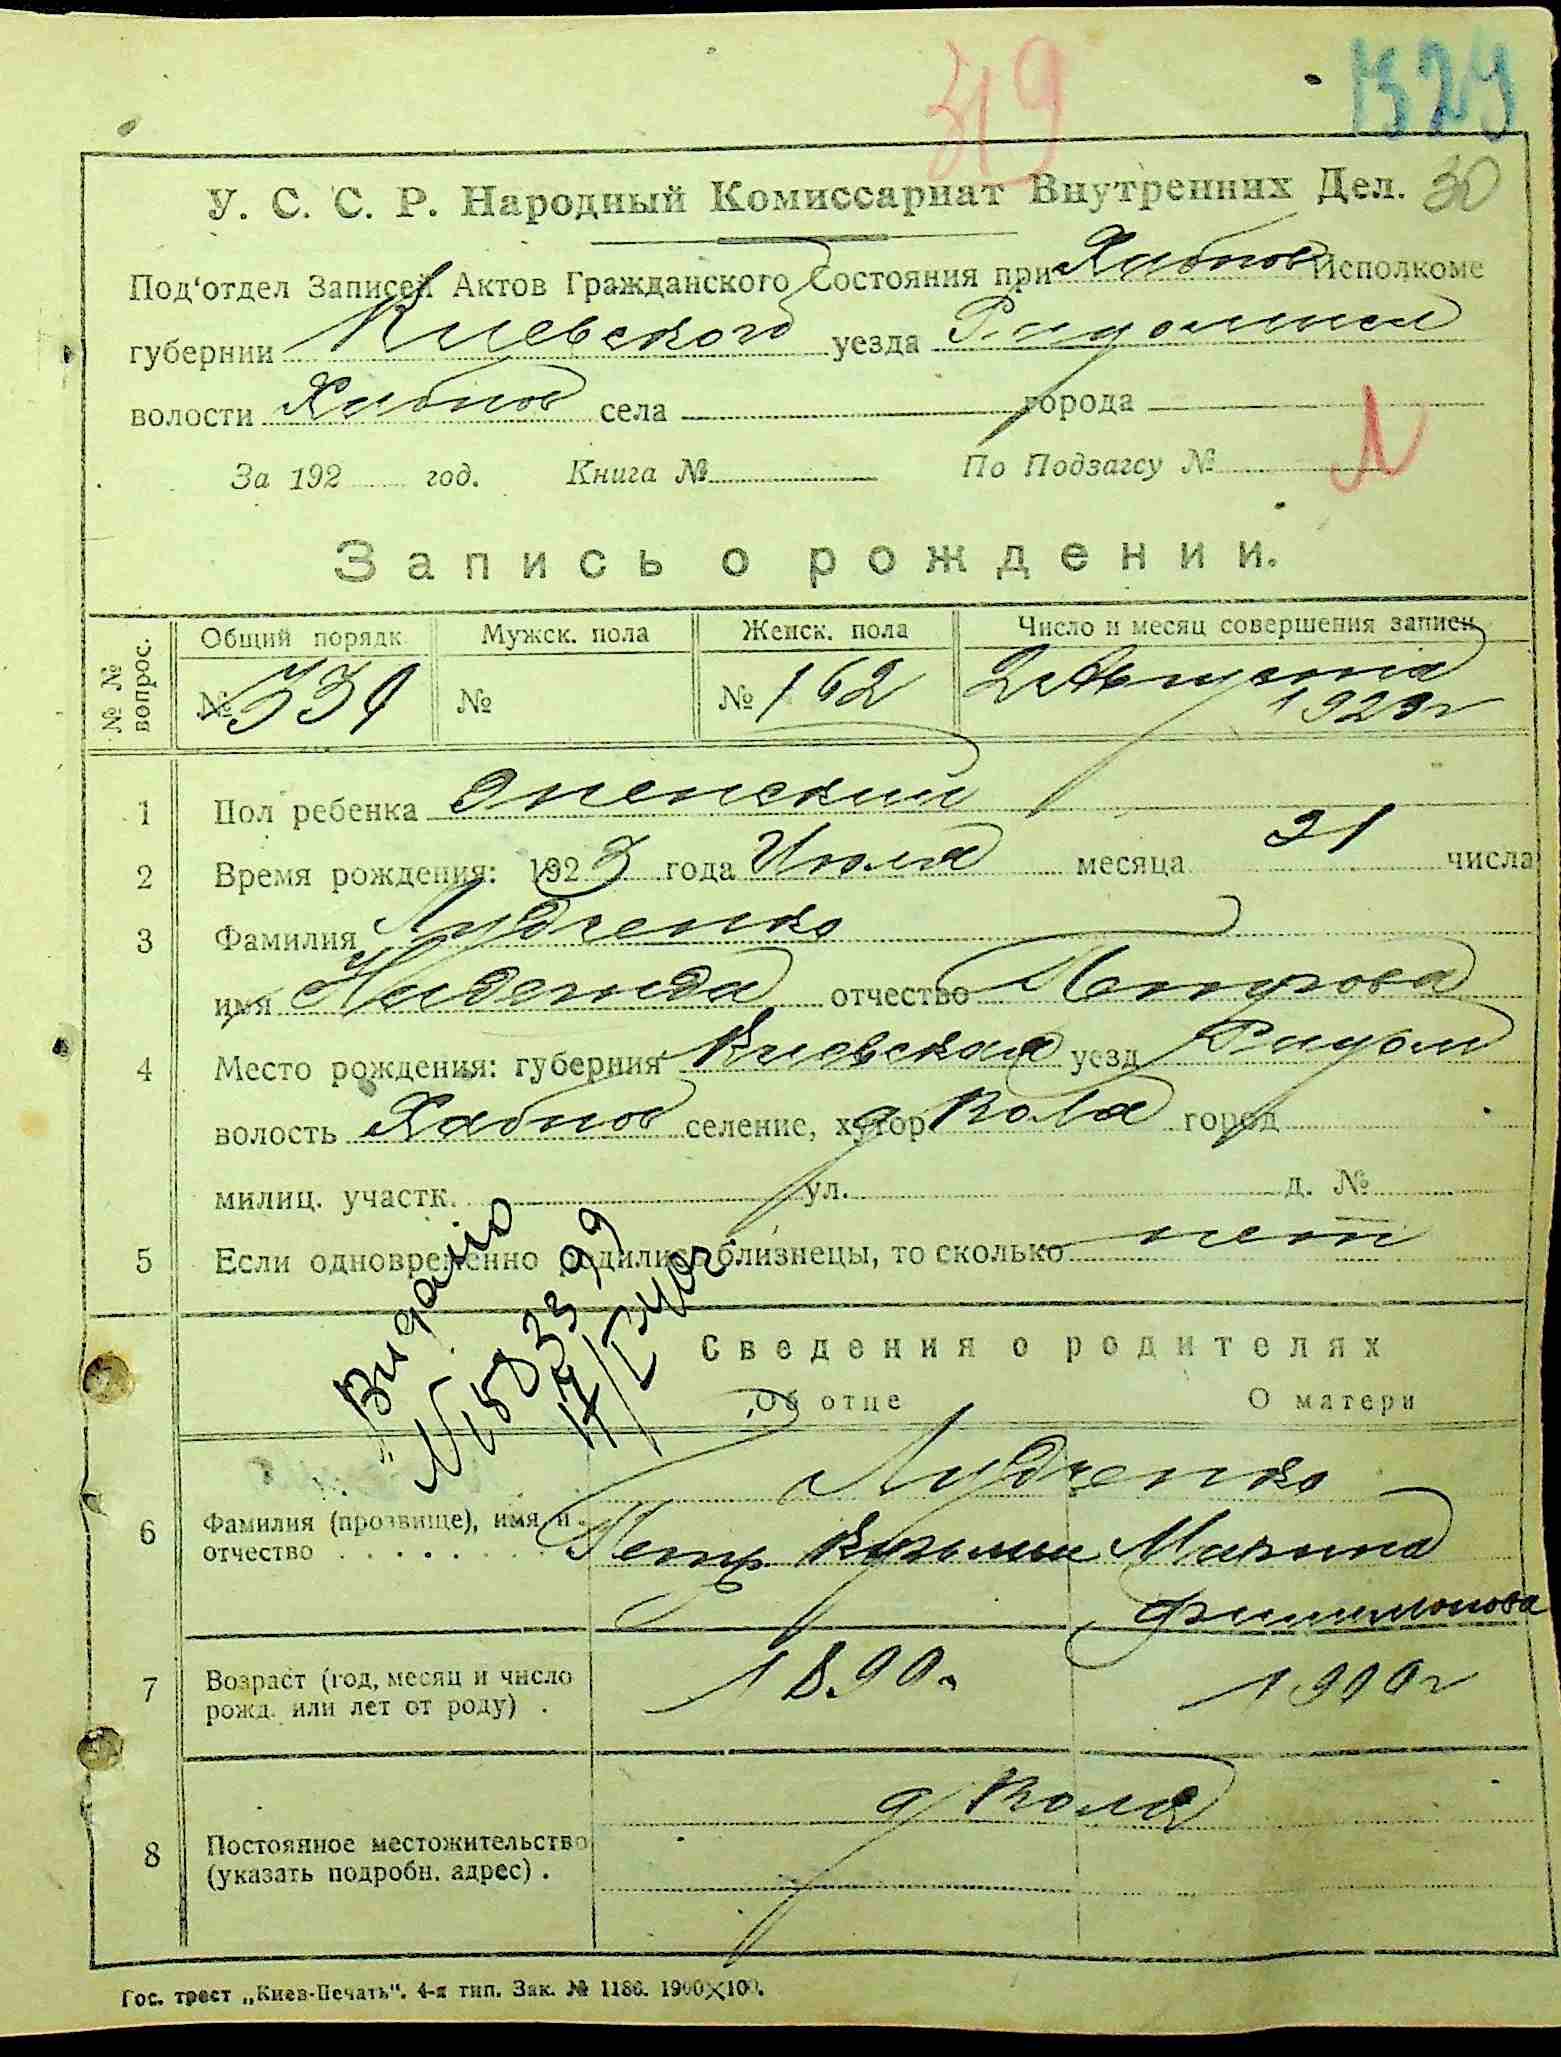 319
1524
У. С. С. Р. Народный Комиссариат Внутренних Дел. 30
Под'отдел Записей Актов Гражданского Состояния при Хабнов Исполкоме
губернии Киевского уезда
волости Хабнов села города
За 192 год. Книга № По Подзагсу №
Запись о рождении.
№ № вопрос. Общий порядк. Мужск. пола Женск. пола Число и месяц совершения записи
№ 334 № № 162 2 Августа
1923 г
1 Пол ребенка женский
2 Время рождения: 1923 года Июля месяца 31 числа
3 Фамилия Лудченко
имя Надежда отчество Петрова
4 Место рождения: губерния Киевская уезд Радом
волость Хабнов селение, хутор д Воля город
милиц. участк. ул. д. №
5 Если одновременно родились близнецы, то сколько нет
Видано
17/
Сведения о родителях
Об отце О матери
Лудченко
6 Фамилия (прозвище), имя и Петр Кузьмин Марина
отчество Филимонова
7 Возраст (год, месяц и число 1890 г 1900 г
рожд. или лет от роду) .
д Воля
8 Постоянное местожительство
(указать подробн. адрес) .
Гос. трест „Киев-Печать". 4-я тип. Зак. № 1186. 1900×100.